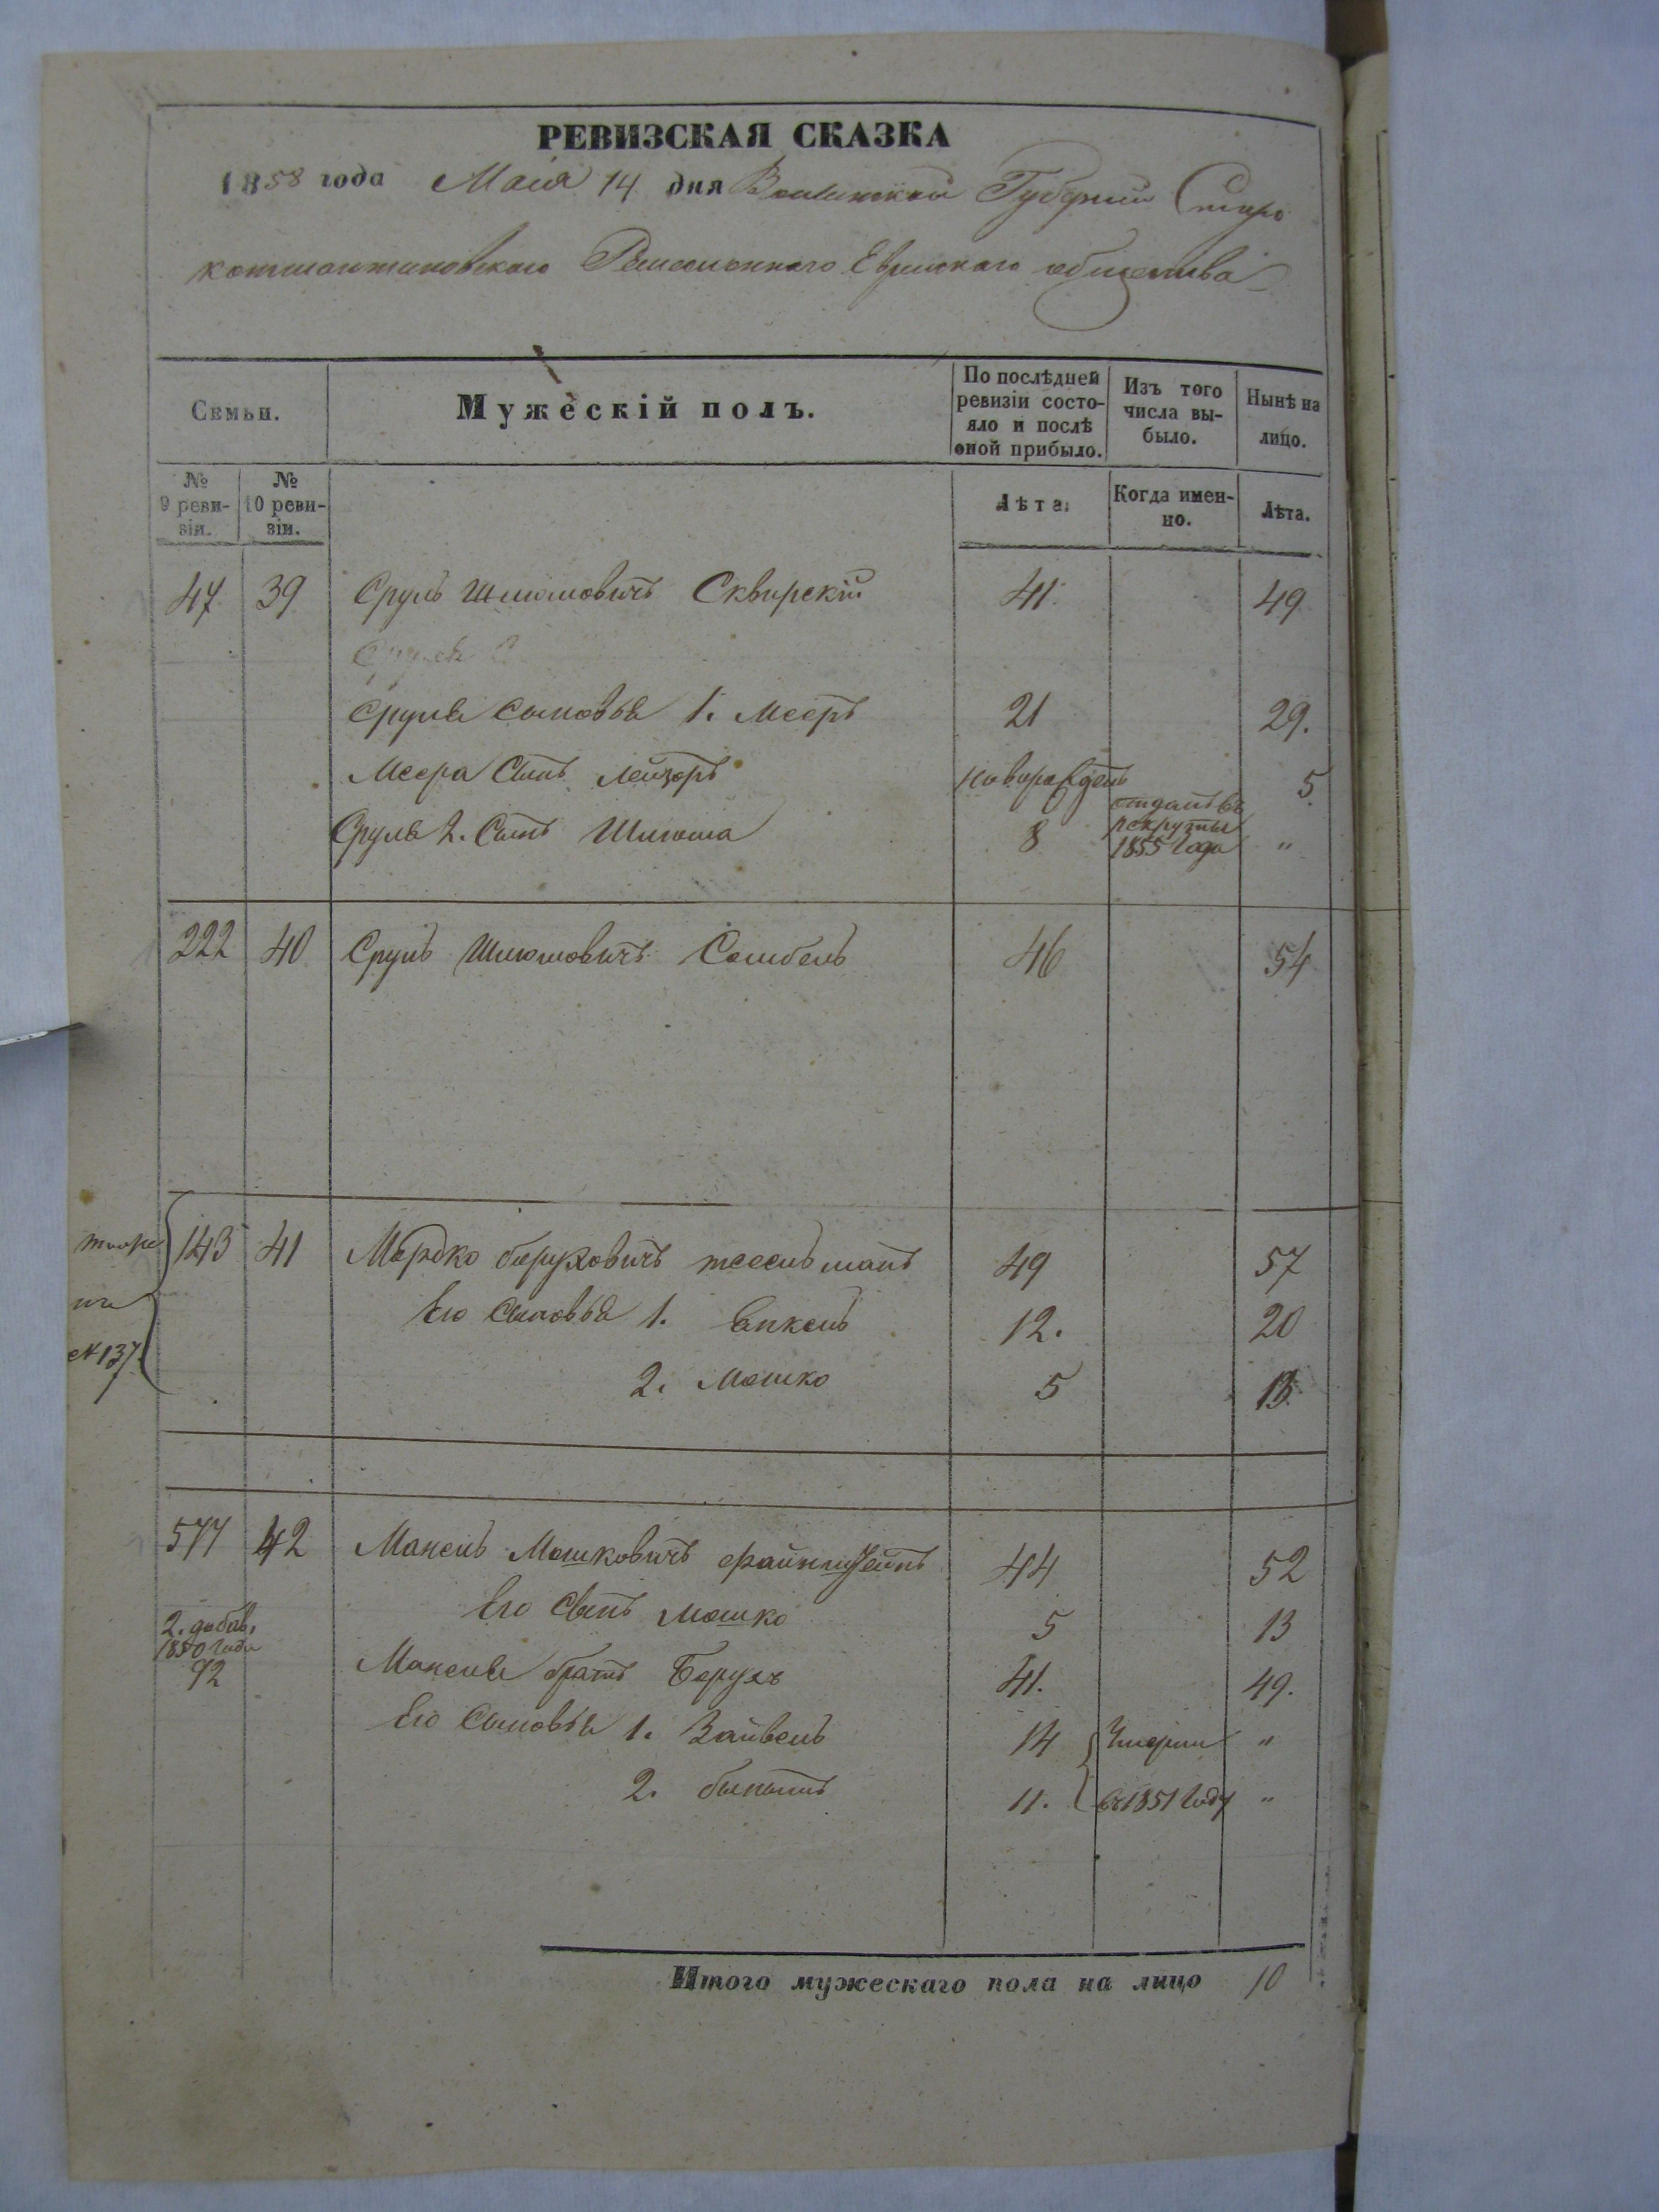 РЕВИЗСКАЯ СКАЗКА
1858 года Маія 14 дня Волынской Губерніи Старо
константиновскаго Ремесленнаго Еврейскаго общества
Семьи.
Мужескій полъ.
По послѣдней ревизіи состояло и послѣ оной прибыло.
Изъ того числа выбыло.
Нынѣ на лицо.
№ 9 ревизіи.
№ 10 ревизіи.
Лѣта.
Когда именно.
Лѣта.
47 39 Сруль Шлiомовичъ Сквирскій 41. 49.
Сруля сыновья 1. Мееръ 21 29.
Меера Сынъ Лейзоръ новорожденъ 5.
Сруля 2. Сынъ Шлiома 8 отданъ въ рекруты 1855 года "
222 40 Сруль Шлiомовичъ 46 54
143 41 Мордко беруховичъ 49 57
№ 137.
Его Сыновья 1. 12. 20
2. Мошко 5 13.
577 42 Манель Мошковичъ файнштейнъ 44 52
Его Сынъ Мошко 5 13
2. добав. 1850 Года
92 Манеля братъ Берухъ 41. 49.
Его Сыновья 1. Зайвель 14 Умерли "
2. 11. въ 1851 Году "
Итого мужескаго пола на лицо 10